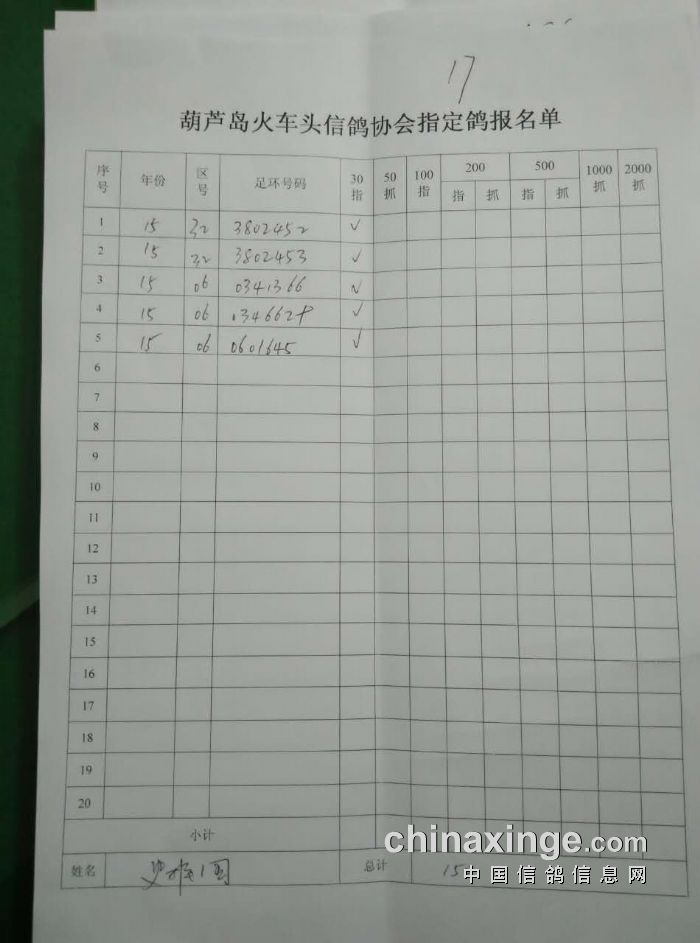 17
葫芦岛火车头信鸽协会指定鸽报名单
序号 年份 区号 足环号码 30指 50抓 100指 200 500 1000抓 2000抓
指 抓 指 抓
1 15 32 3802452 ✓
2 15 32 3802453 ✓
3 15 06 0341366 ✓
4 15 06 ✓
5 15 06 0601645 ✓
6
7
8
9
10
11
12
13
14
15
16
17
18
19
20
小计
姓名 国 总计 15
chinaxinge.com
中国信鸽信息网